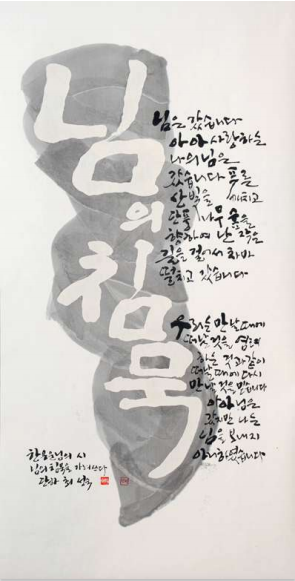 님의 침묵
님은 갔습니다
아아 사랑하는
나의 님은
갔습니다 푸른
산빛을 깨치고
단풍나무 숲을
향하여 난 작은
길을 걸어서 차마
떨치고 갔습니다
우리는 만날 때에
떠날 것을 염려
하는 것과 같이
떠날 때에 다시
만날 것을 믿습니다
아아 님은
갔지만 나는
님을 보내지
아니하였습니다
한용운님의 시
님의 침묵을 가려쓰다
최